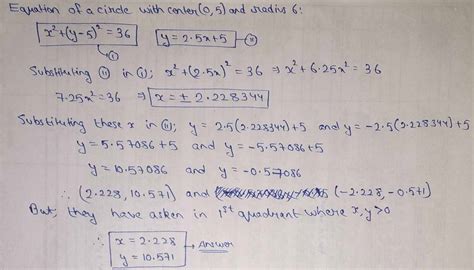 Equation of a circle with center (0,5) and radius 6:
x²+(y-5)²=36 → ① y=2.5x+5 → ⑪
Substituting ⑪ in ①; x²+(2.5x)²=36 ⇒ x²+6.25x²=36
7.25x²=36 ⇒ x=± 2.228344
Substituting these x in ⑪; y=2.5(2.228344)+5 and y=-2.5(2.228344)+5
y=5.57086+5 and y=-5.57086+5
y=10.57086 and y=-0.57086
∴ (2.228, 10.571) and (-2.228, -0.571)
But, they have asken in 1st quadrant where x,y>0
∴ x=2.228
y=10.571 → Answer